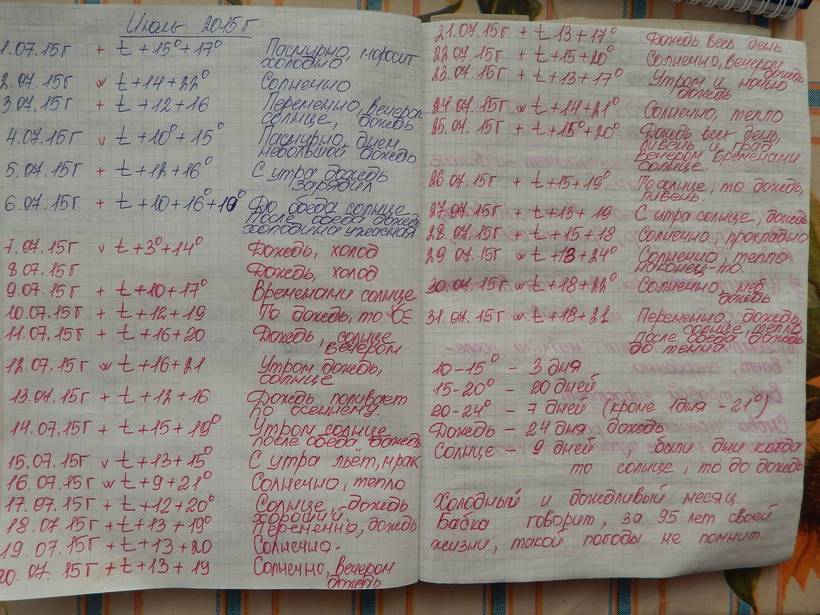 Июль 2015г
1.07.15г + t +15°+17° Пасмурно, моросит
холодно
2.07.15г w t +14+22° Солнечно
3.07.15г + t +12+16 Переменно, вечером
солнце, дождь
4.07.15г v t +10°+15° Пасмурно, днем
небольшой дождь
5.07.15г + t +12+16° С утра дождь
зарядил
6.07.15г + t +10+16+10° До обеда солнце
После обеда дождь
холодина ужасная
7.07.15г v t +3°+14° Дождь, холод
8.07.15г Дождь, холод
9.07.15г + t +10+17° Временами солнце
10.07.15г + t +12+19 То дождь, то
11.07.15г + t +16+20 Дождь, солнце
вечером
12.07.15г w t +16+21 Утром дождь,
солнце
13.07.15г + t +12+16 Дождь поливает
по осеннему.
14.07.15г + t +15+19° Утром солнце
после обеда дождь
15.07.15г v t +13+15° С утра льёт, мрак
16.07.15г w t +9+21° Солнечно, тепло
17.07.15г + t +12+20° Солнце, дождь
хороший
18.07.15г + t +13+19° Переменно, дождь
19.07.15г + t +13+20 Солнечно.
20.07.15г + t +13+19 Солнечно, вечером
дождь
21.07.15г + t +13+17° Дождь весь день
22.07.15г + t +15+20° Солнечно, вечером
дождь
23.07.15г + t +13+17° Утром и ночью
дождь
24.07.15г w t +14+21° Солнечно, тепло
25.07.15г + t +15°+20° Дождь весь день,
ливень и град
Вечером временами
солнце.
26.07.15г + t +15+19° То солнце, то дождь,
ливень.
27.07.15г + t +13+19 С утра солнце, дождь
28.07.15г + t +15+18 Солнечно, прохладно
29.07.15г w t +13+24° Солнечно, тепло
наконец-то
30.07.15г w t +18+22° Солнечно, неб.
дождь
31.07.15г w t +18+21 Переменно, дождь,
солнце, тепло
После обеда дождь
до темна
10-15° - 3 дня
15-20° - 20 дней
20-24° - 7 дней (кроме 1дня -21°)
Дождь - 24 дня дождь
Солнце - 9 дней , были дни когда
то солнце, то до дождь
Холодный и дождливый месяц.
Бабка говорит, за 95 лет своей
жизни, такой погоды не помнит.